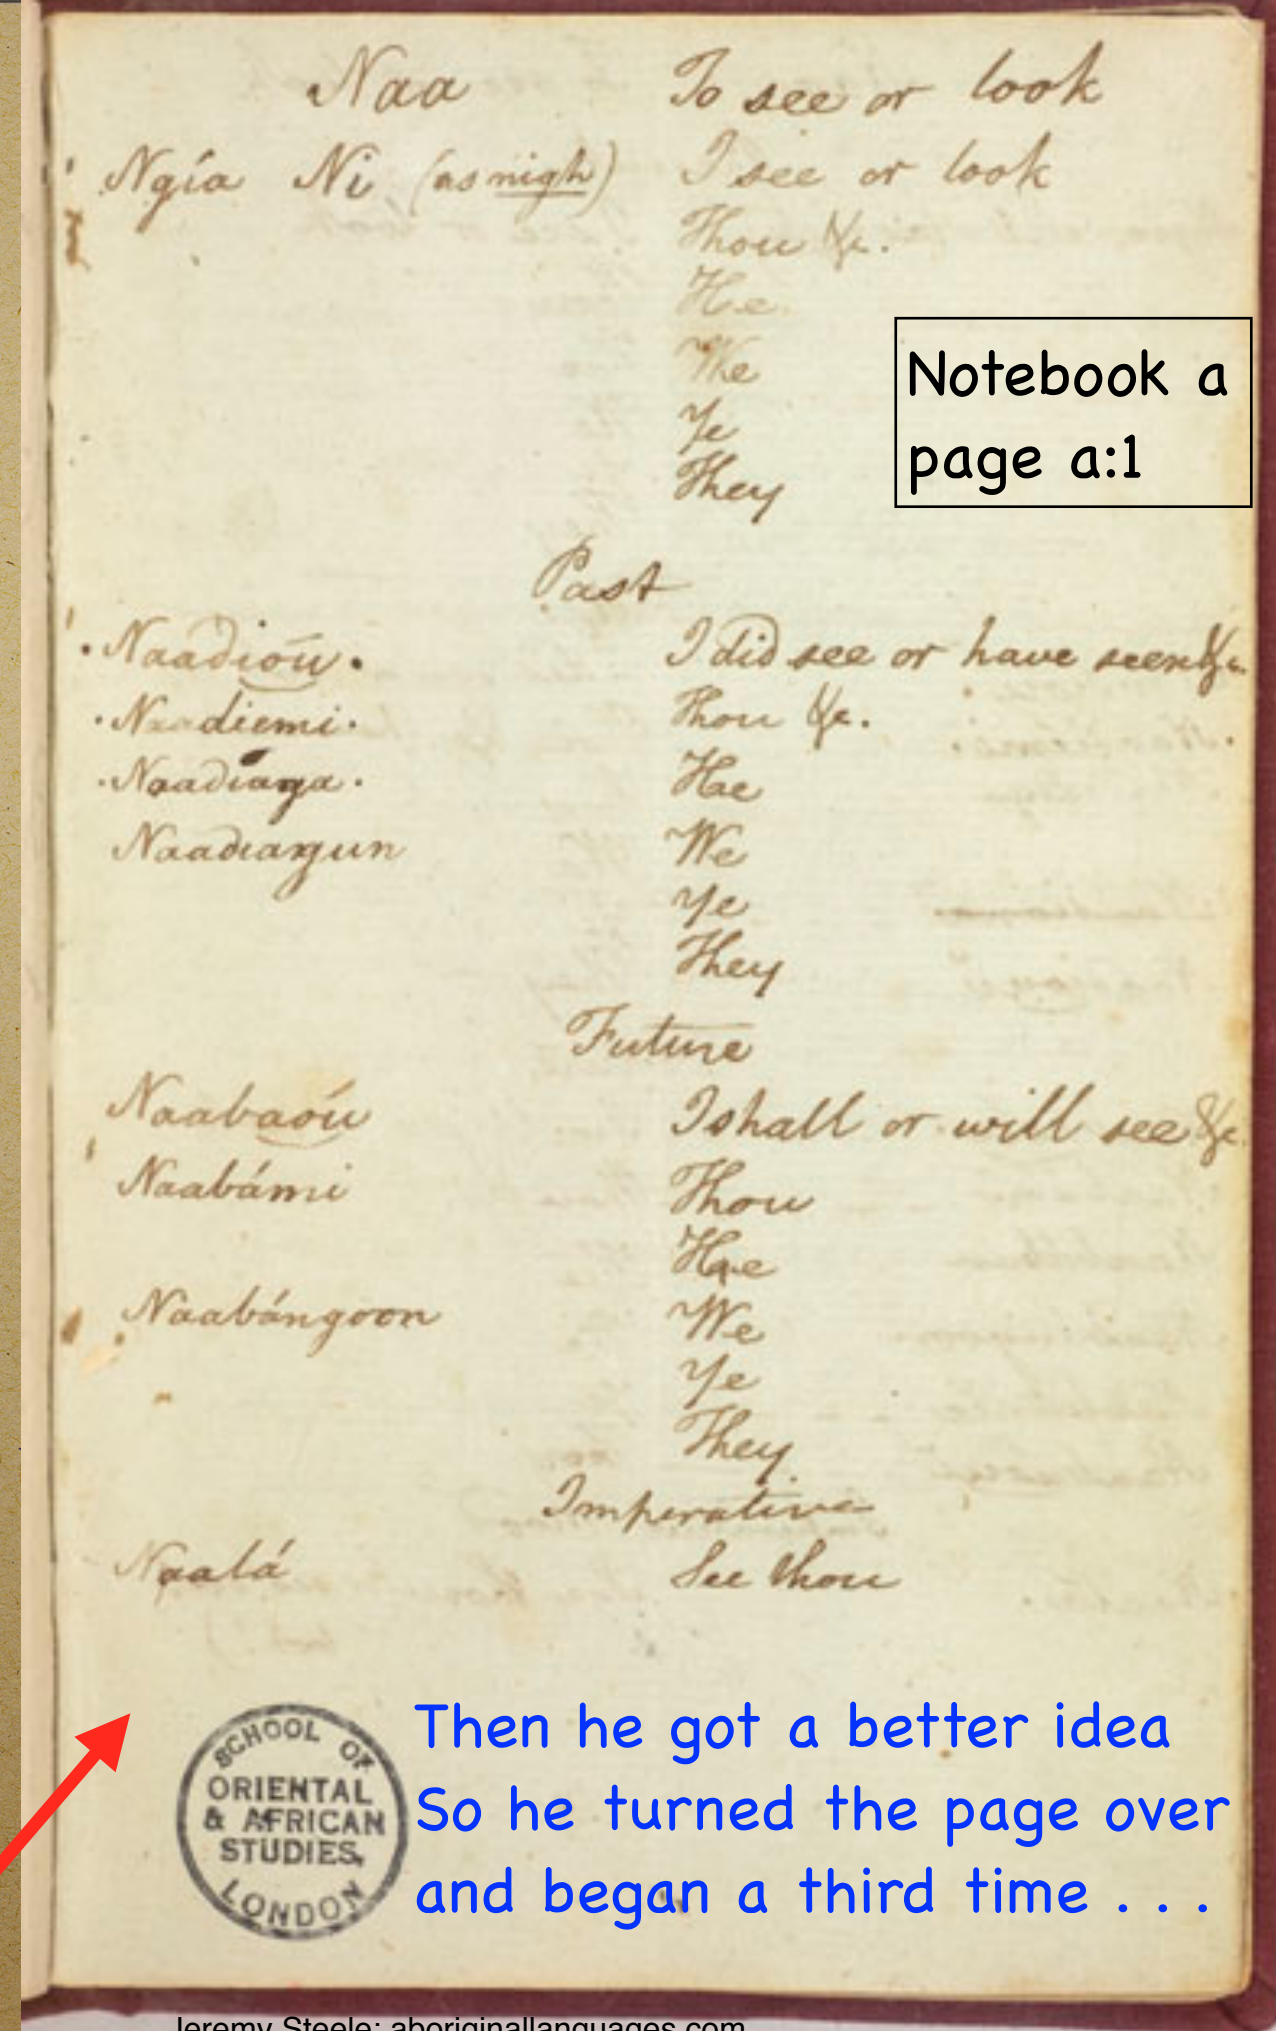 Naa To see or look
Ngía Ni (as nigh) I see or look
Thou &c.
He
We
Ye
They
Notebook a
page a:1
Past
Naadioú. I did see or have seen &c.
Naadiemi. Thou &c.
Naadianga. He
Naadiangun We
Ye
They
Future
Naabaoú I shall or will see &c
Naabámi Thou
He
Naabángoon We
Ye
They
Imperative
Naalá See thou
SCHOOL OF
ORIENTAL
& AFRICAN
STUDIES,
LONDON
Then he got a better idea
So he turned the page over
and began a third time . . .
Jeremy Steele: aboriginallanguages.com